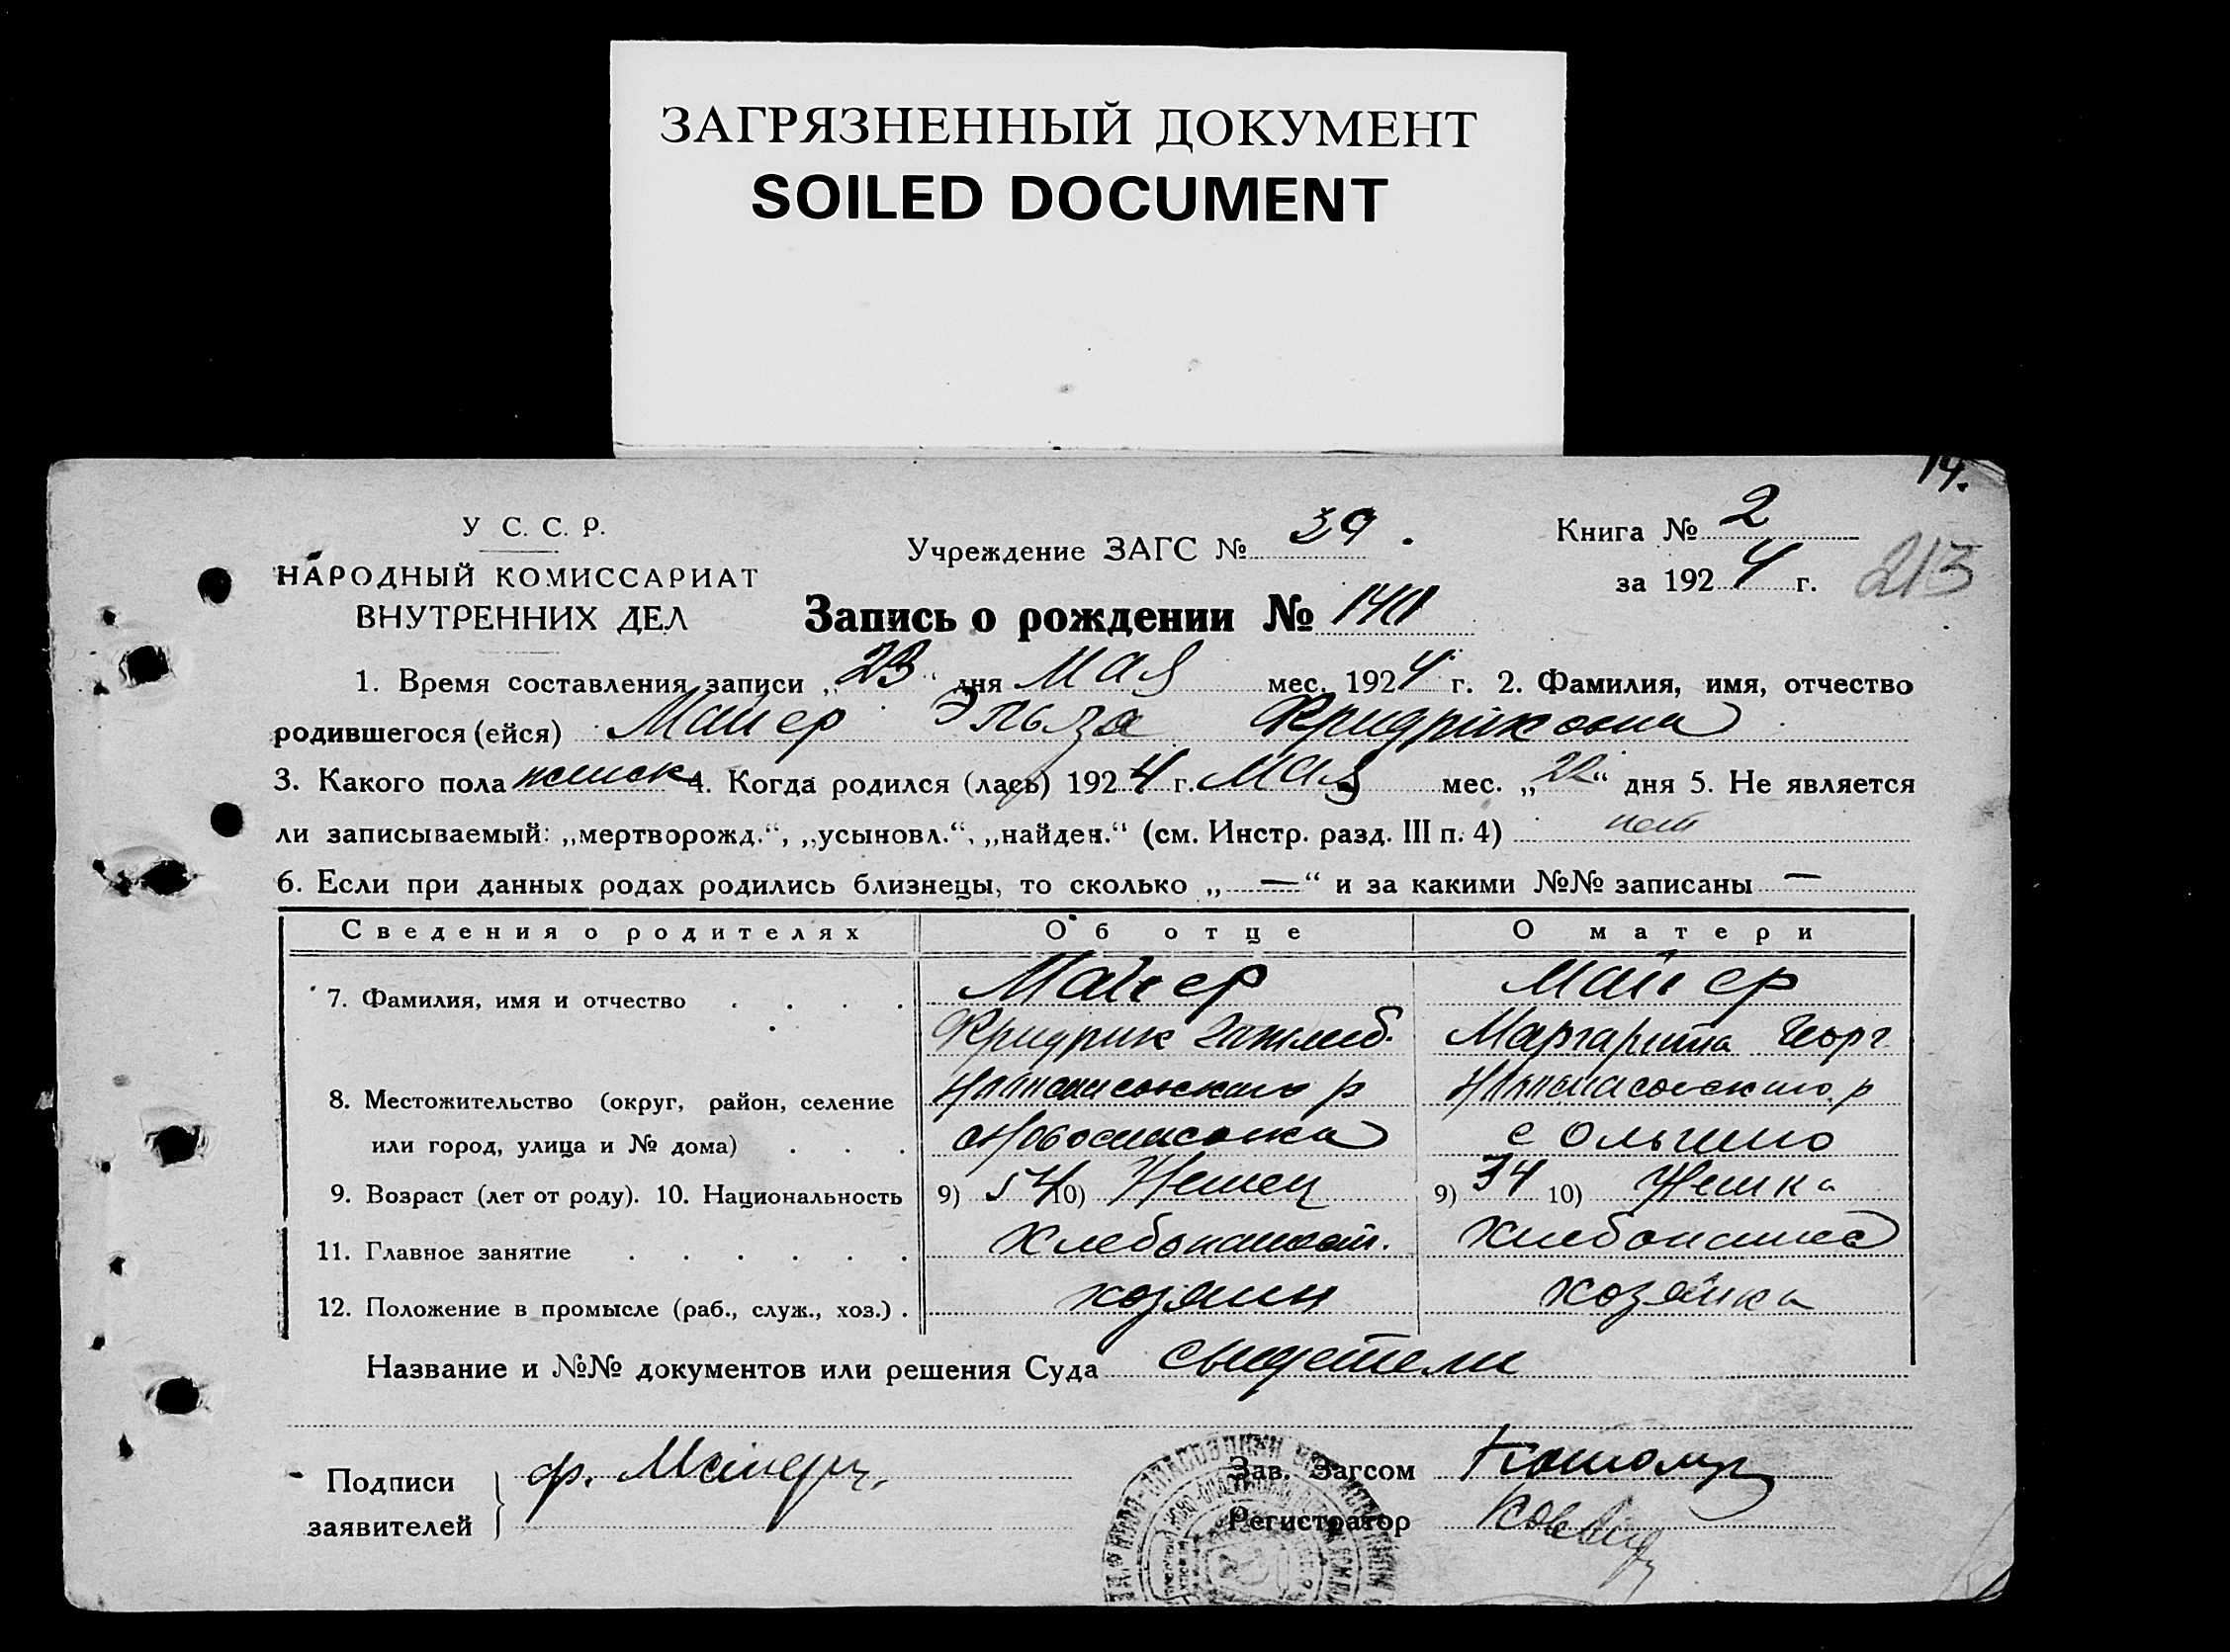 ЗАГРЯЗНЕННЫЙ ДОКУМЕНТ
SOILED DOCUMENT
14.
У С. С. Р.
НАРОДНЫЙ КОМИССАРИАТ
ВНУТРЕННИХ ДЕЛ
Учреждение ЗАГС № 39.
Книга № 2
за 1924 г.
213
Запись о рождении №
1. Время составления записи „23“ дня Мая мес. 1924 г. 2. Фамилия, имя, отчество
родившегося (ейся) Майер Эльза Фридриховна
3. Какого пола женск 4. Когда родился (лась) 1924 г. Мая мес. „22“ дня 5. Не является
ли записываемый: „мертворожд.“, „усыновл.“, „найден.“ (см. Инстр. разд. III п. 4) нет
6. Если при данных родах родились близнецы, то сколько „—“ и за какими №№ записаны —
Сведения о родителях Об отце О матери
7. Фамилия, имя и отчество . . . . Майер Майер
Фридрик Готлиб. Маргарита Георг
8. Местожительство (округ, район, селение р р
или город, улица и № дома) . . . Новоспасовка с Ольгино
9. Возраст (лет от роду). 10. Национальность 9) 54 10) Немец 9) 34 10) Немка
11. Главное занятие . . . . . . Хлебопашест.
12. Положение в промысле (раб., служ., хоз.) . хозяин хозяйка
Название и №№ документов или решения Суда свидетели
Подписи
заявителей
Ф. Майер
Зав. Загсом
Регистратор